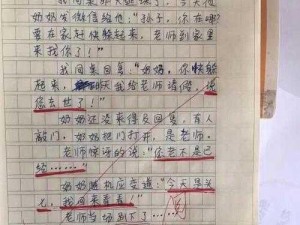 奶奶发微信给他："孙子，你在哪
要在家赶快躲起来，老师到家里
来找你了！"
我同桌回复："奶奶，你快躲
起来，昨天我给老师请假，说
您去世了！"
奶奶还没来得及回复，有人
敲门，奶奶把门打开，是老师。
老师惊讶的说："您老不是已
经……"
奶奶随机应变道："今天是头
七，我回来看看！"
老师当场倒下了……